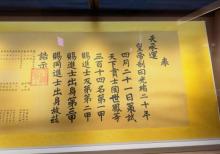 奉
天承運
皇帝制曰光緒二十年
四月二十一日策試
天下貢士陶世鳳等
三百十四名第一甲
賜進士及第第二甲
賜進士出身第三甲
賜同進士出身故茲
誥示